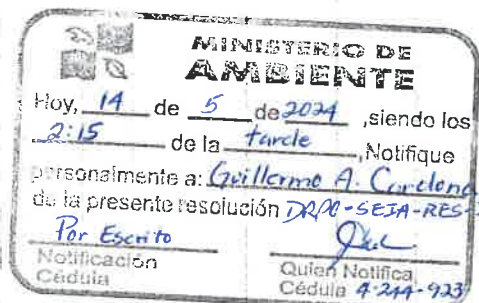 MINISTERIO DE
AMBIENTE
Hoy, 14 de 5 de 2024 ,siendo los
2:15 de la tarde ,Notifique
personalmente a: Guillermo A. Cardona
de la presente resolución DRPO-SEIA-RES-
Por Escrito
Notificación Quien Notifica
Cédula Cédula 4-244-923